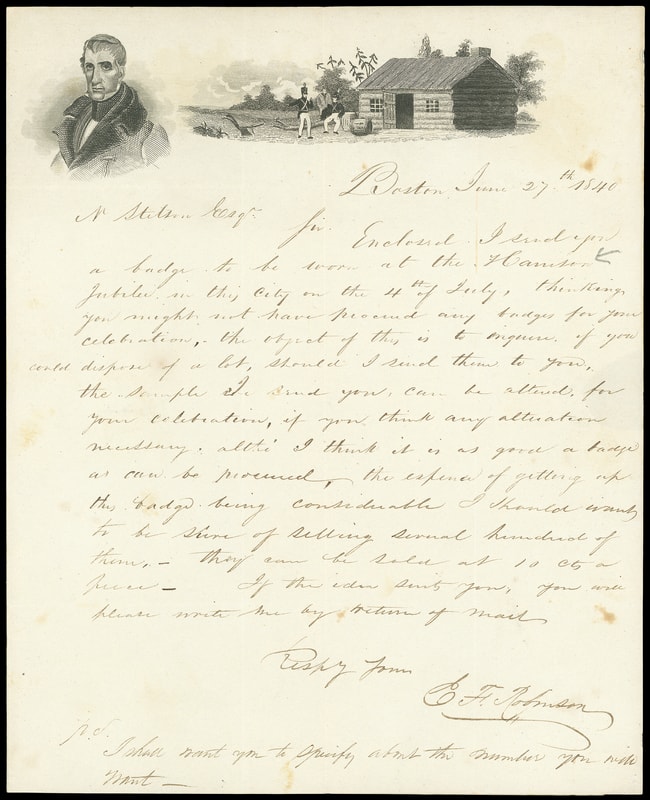 Boston June 27th 1840
N Stetson Esqr
Sir. Enclosed I send you
a badge to be worn at the Harrison
Jubilee in this City on the 4th of July, thinking
you might not have procured any badges for your
celebration, - the object of this is to enquire, if you
could dispose of a lot, should I send them to you,
the sample I send you, can be altered, for
your celebration, if you think any alteration
necessary. altho' I think it is as good a badge
as can be procured, the expense of getting up
this badge being considerable I should want
to be sure of selling several hundred of
them, - they can be sold at 10 cts a
piece - If the idea suits you, you will
please write me by return of mail
Respy Yours
E. F. Robinson
p.S.
I shall want you to specify about the number you will
want -